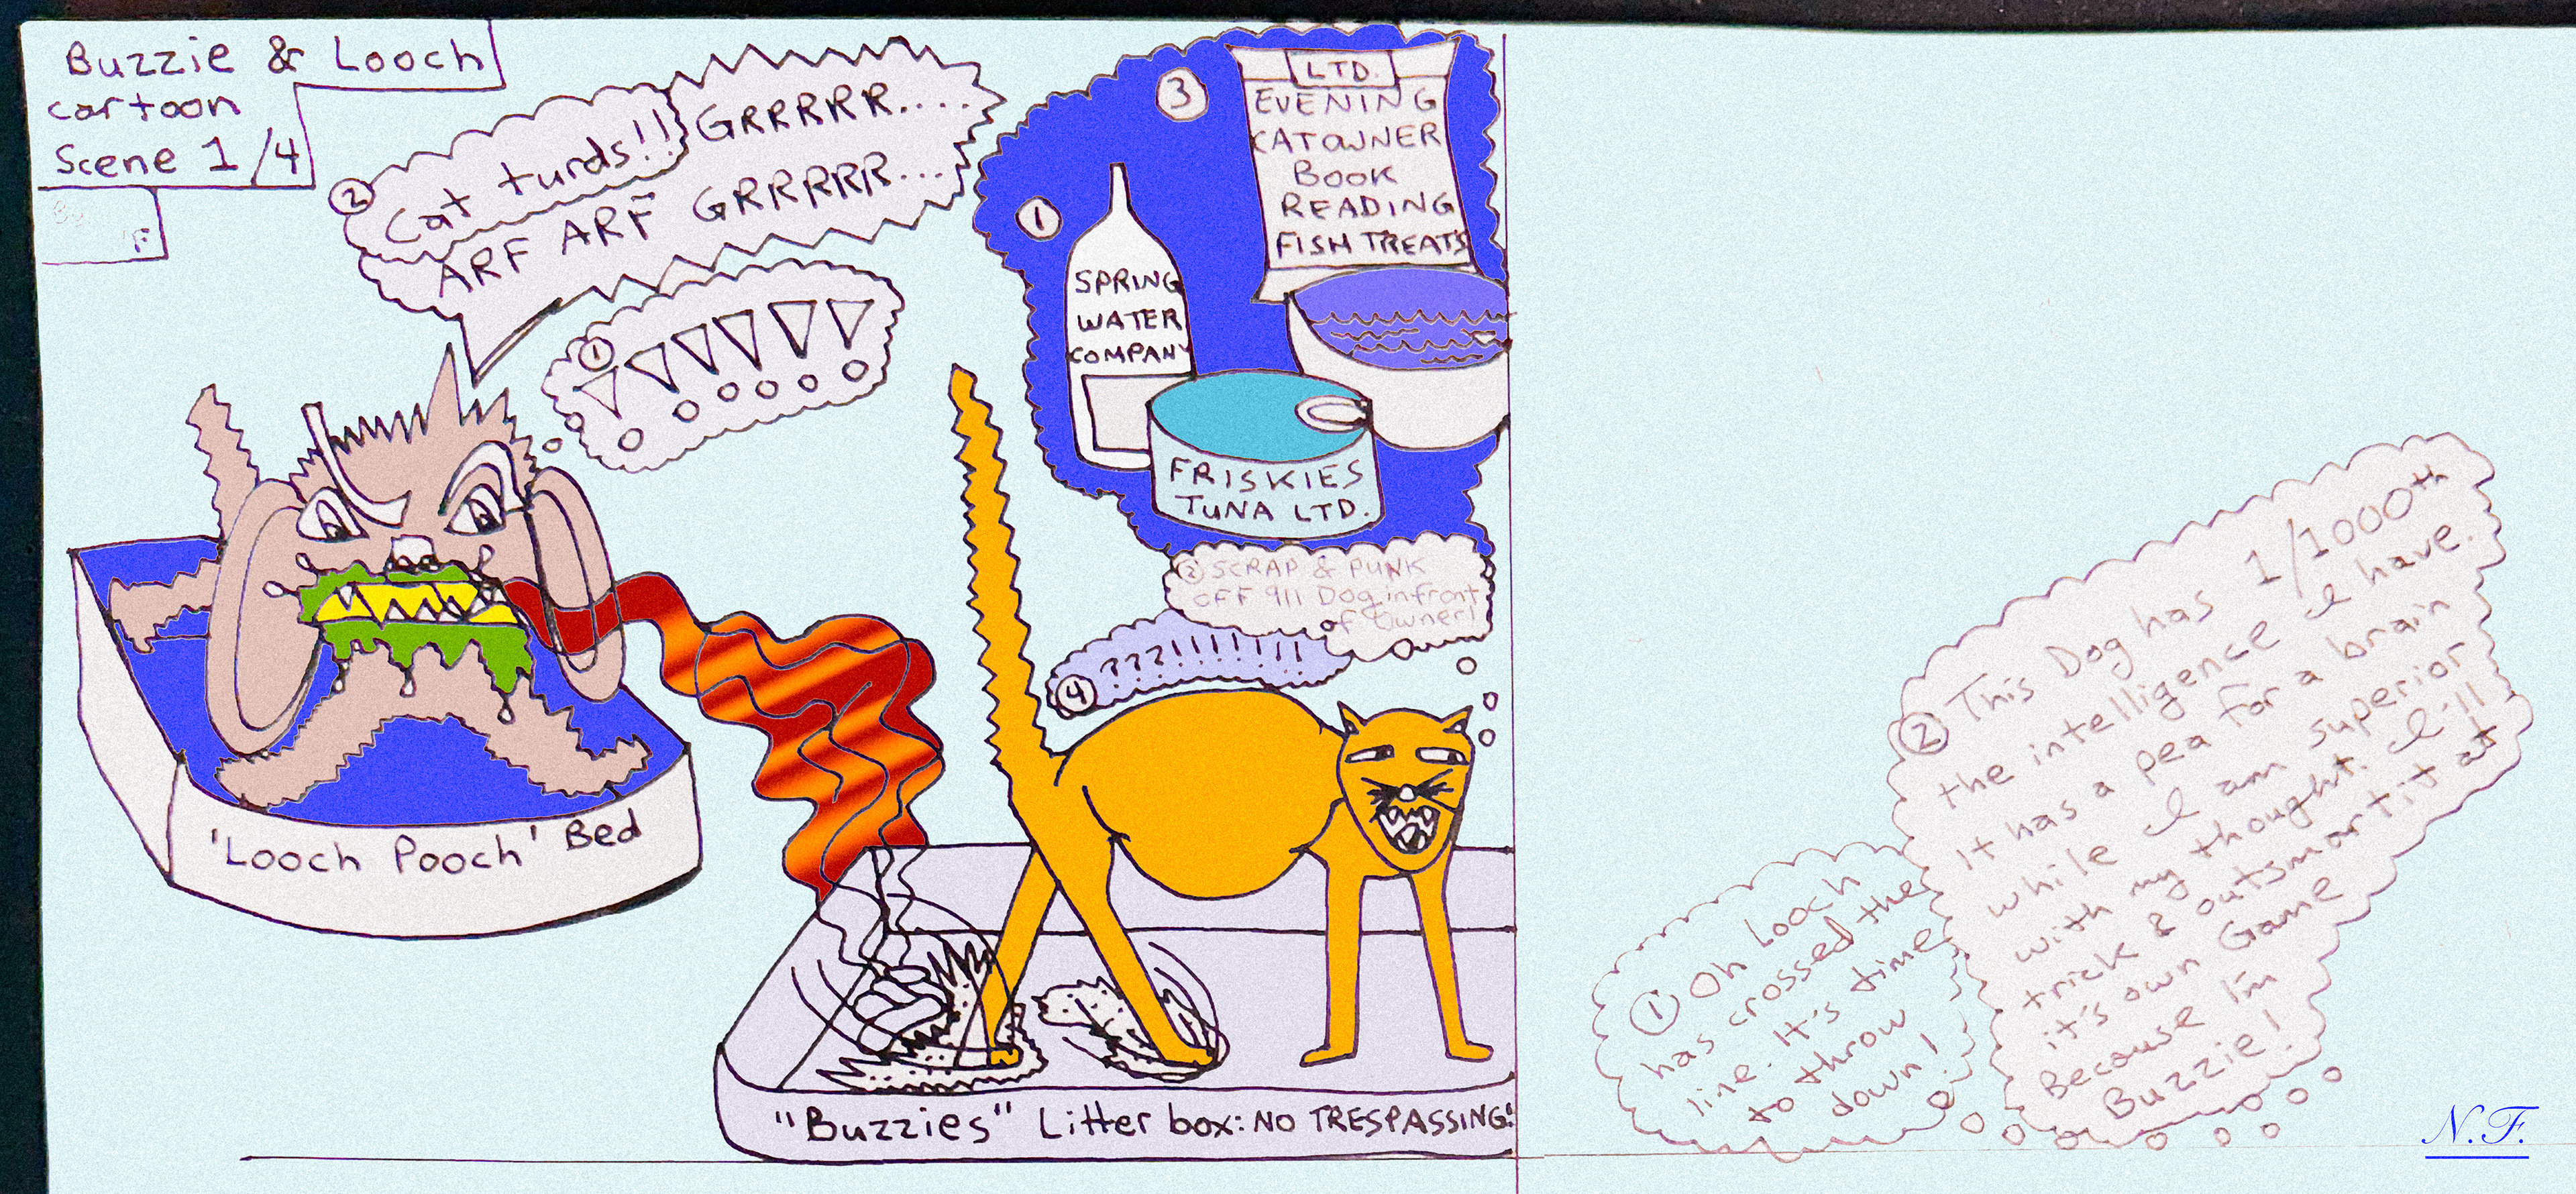 Buzzie & Looch
cartoon
Scene 1/4
② Cat turds!! GRRRRR....
ARF ARF GRRRRR...
① !!!!!!
①
SPRING
WATER
COMPANY
③
LTD.
EVENING
CATOWNER
BOOK
READING
FISH TREATS
FRISKIES
TUNA LTD.
② SCRAP & PUNK
OFF 911 Dog infront
of Owner!
④ ???!!!!!!!
'Looch Pooch' Bed
"Buzzies" Litter box: NO TRESPASSING!
① Oh Looch
has crossed the
line. It's time
to throw
down!
② This Dog has 1/1000th
the intelligence I have.
It has a pea for a brain
while I am superior
with my thought. I'll
trick & outsmart it at
it's own Game
Because I'm
Buzzie!
N.F.